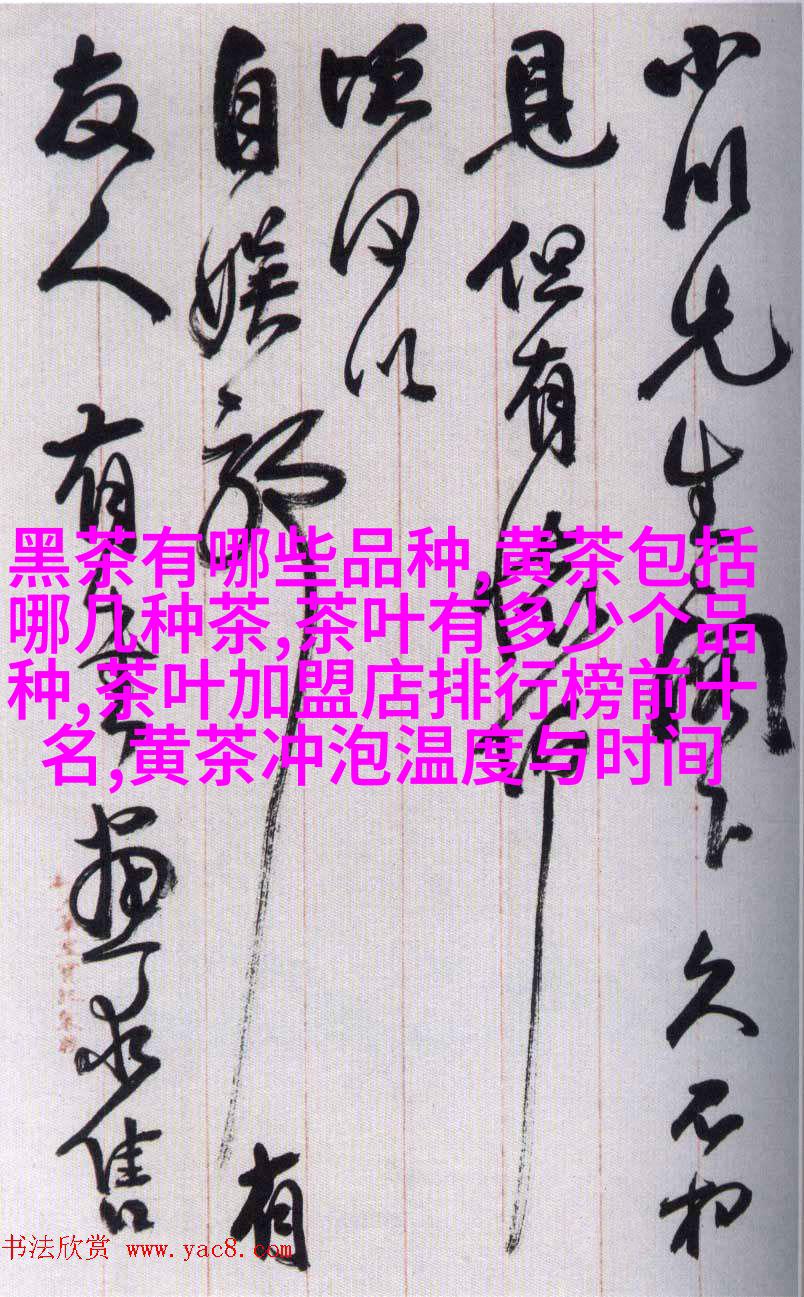 小川先生閣下 久不相
見 但有
以
自娱 有
友人 有 畫求售
黑茶有哪些品种,黄茶包括
哪几种茶,茶叶有多少个品
种,茶叶加盟店排行榜前十
名,黄茶冲泡温度与时间
书法欣赏 www.yac8.com